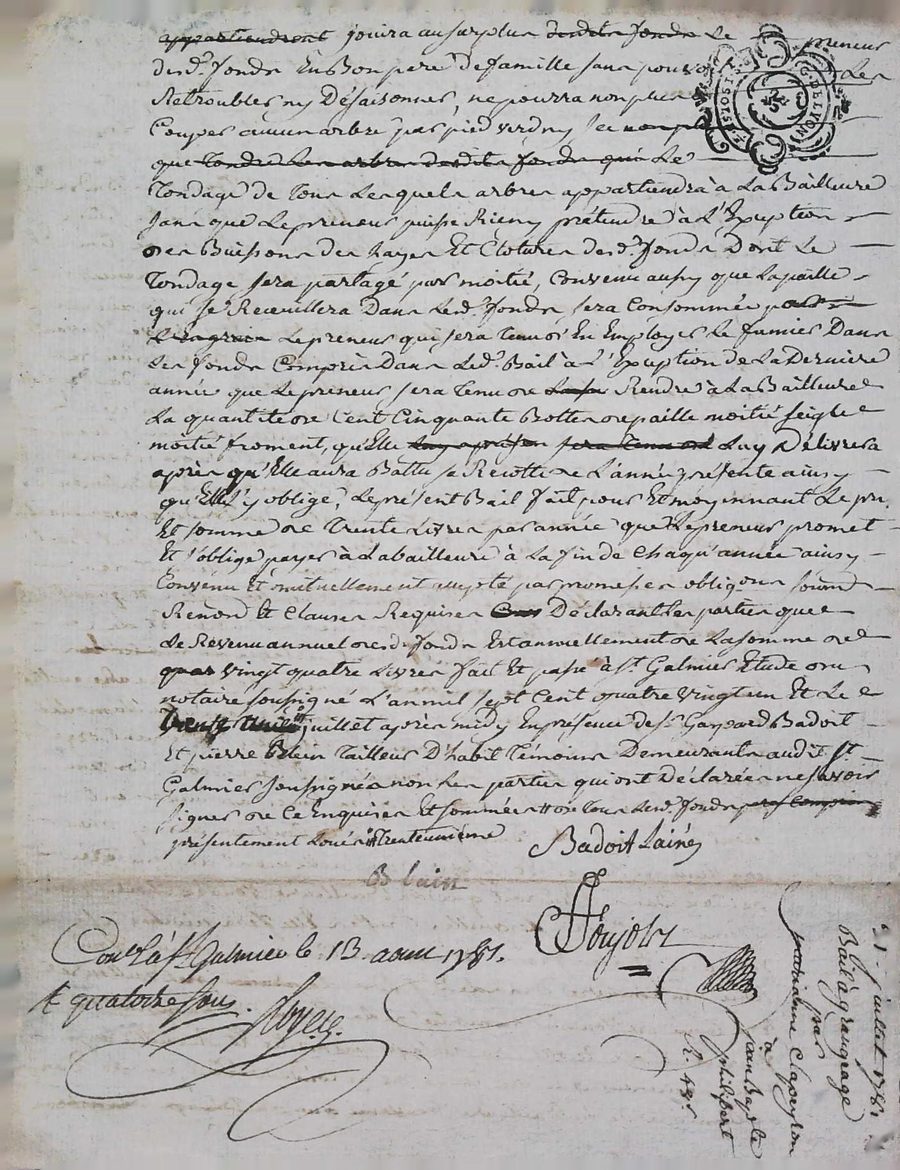 appartiendront jouira au surplus desdits fonds Le preneur
desd. fonds En Bon pere De famille sans pouvoir Les
Retroubler ny Désaisonner, ne pourra non plus
Couper aucun arbre par pied verd ny sec
que tondre Les arbres desdits fonds Le
Tondage De tous Lesquels arbres appartiendra à La Bailleure
sans que Le preneur puisse Rien y prétendre à L'Exception
des Buissons des hayes Et Clotures desd. fonds Dont Le
Tondage sera partagé par moitié, Convenu aussy que La paille
qui se Receuillera Dans Lesd. fonds sera Consommée par
Le preneur qui sera tenu d'En Employer Le fumier Dans
Les fonds Compris Dans Led. Bail à L'Exception de La Derniere
année que Le preneur sera tenu de Rendre à La Bailleure
La quantité de Cent Cinquante Bottes de paille moitié seigle
moitié froment, qu'Elle sera tenue de Luy Délivrera
après qu'Elle aura Battu sa Recolte de L'année présente ainsy
qu'Elle s'y oblige, Le présent Bail fait pour Et moyennant Le prix
Et somme de Trente Livres par année que Le preneur promet
Et s'oblige payer à La bailleure à La fin de Chaqu'année ainsy
Convenu Et mutuellement accepté par promesses obligons soumis
Renond Et Clauses Requises Déclarant Les parties que
Le Revenu annuel desd. fonds Est annuellement de La somme de
vingt quatre Livres fait Et passé à St. Galmier Etude du
notaire soussigné L'an mil sept Cent quatre vingt un Et Le
juillet après midy En presence de Sr. Gaspard Badoit
Et pierre Blein Tailleur D'habit Témoins Demeurants audit St.
Galmier soussignés non Les parties qui ont Déclarées ne savoir
signer de Ce Enquises Et sommées # de tous Lesd. fonds
présentement Loués # trente unième
Badoit Lainé
Blain
Poujolz
Conlé à St. Galmier le 13 aout 1781.
R quatorze sous.
Royer
31 juillet 1781
Bail à grangeage
par
marianne Clapeyron
à
jean Baptiste
philipert